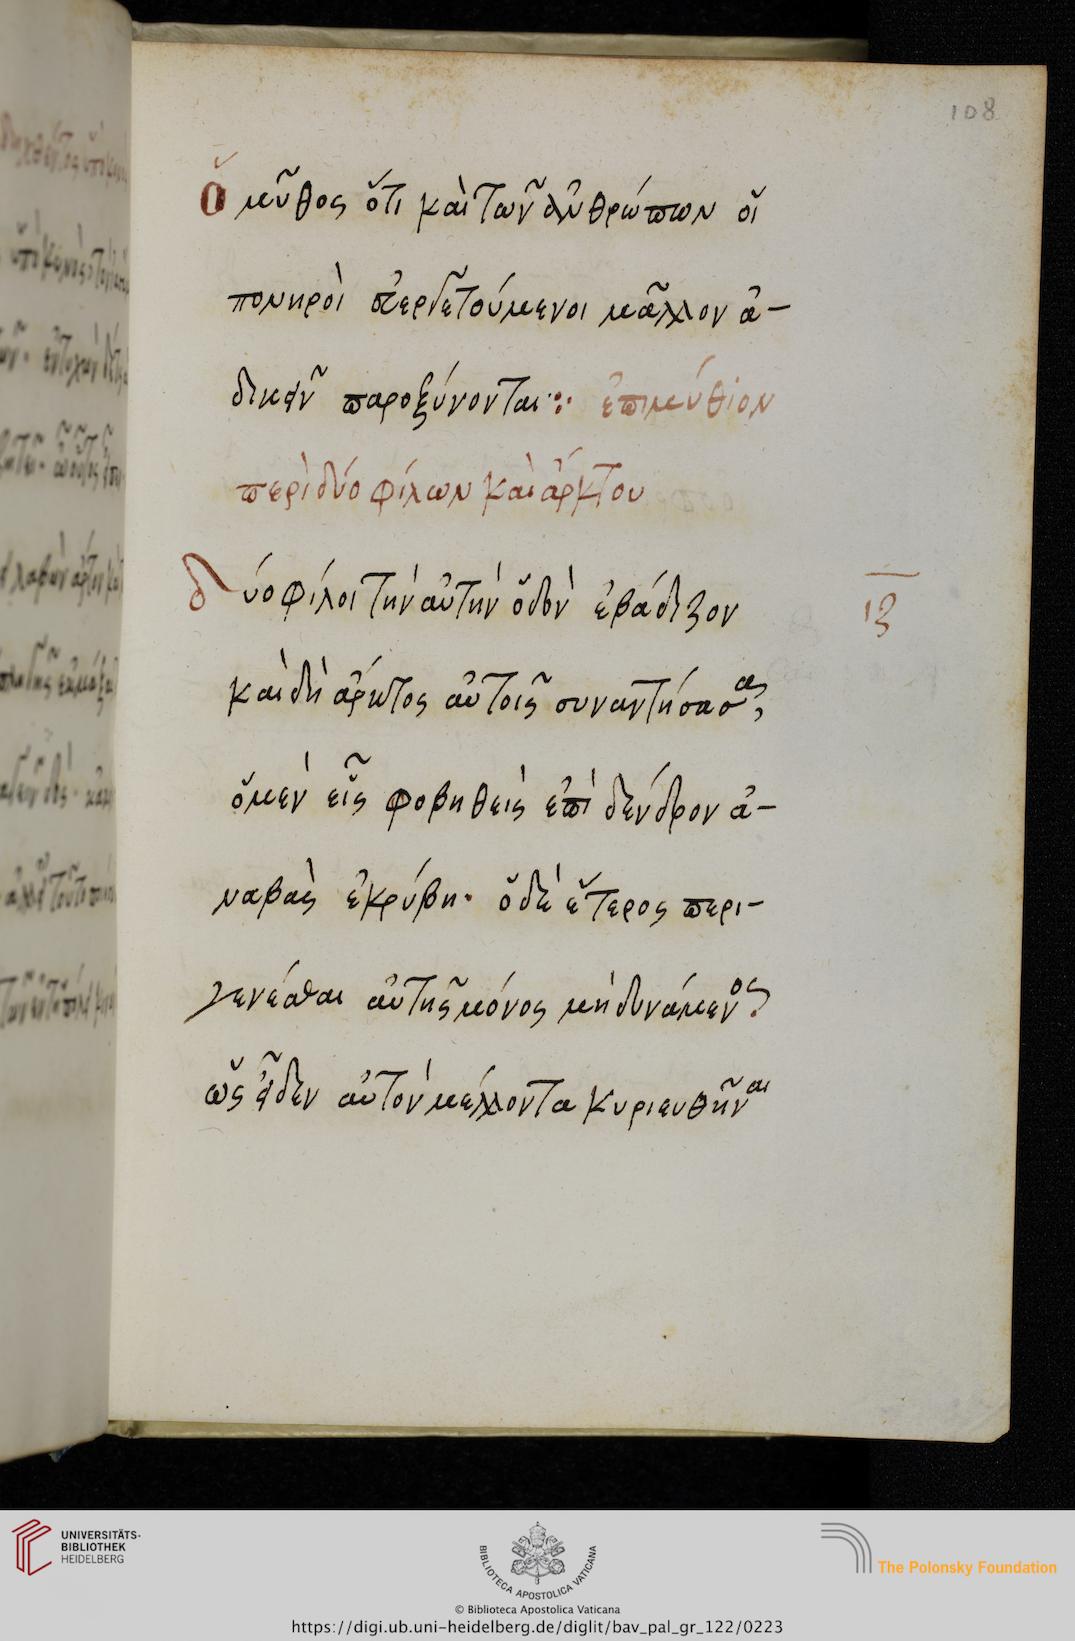 108
Ὁ μῦθος ὅτι καὶ τῶν ἀνθρώπων οἱ
πονηροὶ εὐεργετούμενοι μᾶλλον ἀ-
δικεῖν παροξύνονται: ἐπιμύθιον
περὶ δύο φίλων καὶ ἄρκτου
δύο φίλοι τὴν αὐτὴν ὁδὸν ἐβάδιζον
ιζ
καὶ δὴ ἄρκτος αὐτοῖς συναντήσασα,
ὁ μὲν εἷς φοβηθεὶς ἐπὶ δένδρον ἀ-
ναβὰς ἐκρύβη· ὁ δὲ ἕτερος περι-
γενέσθαι αὐτῆς μόνος μὴ δυνάμενος
ὡς εἶδεν αὐτὸν μέλλοντα κυριευθῆναι
UNIVERSITÄTS-
BIBLIOTHEK
HEIDELBERG
BIBLIOTECA APOSTOLICA VATICANA
The Polonsky Foundation
© Biblioteca Apostolica Vaticana
https://digi.ub.uni-heidelberg.de/diglit/bav_pal_gr_122/0223